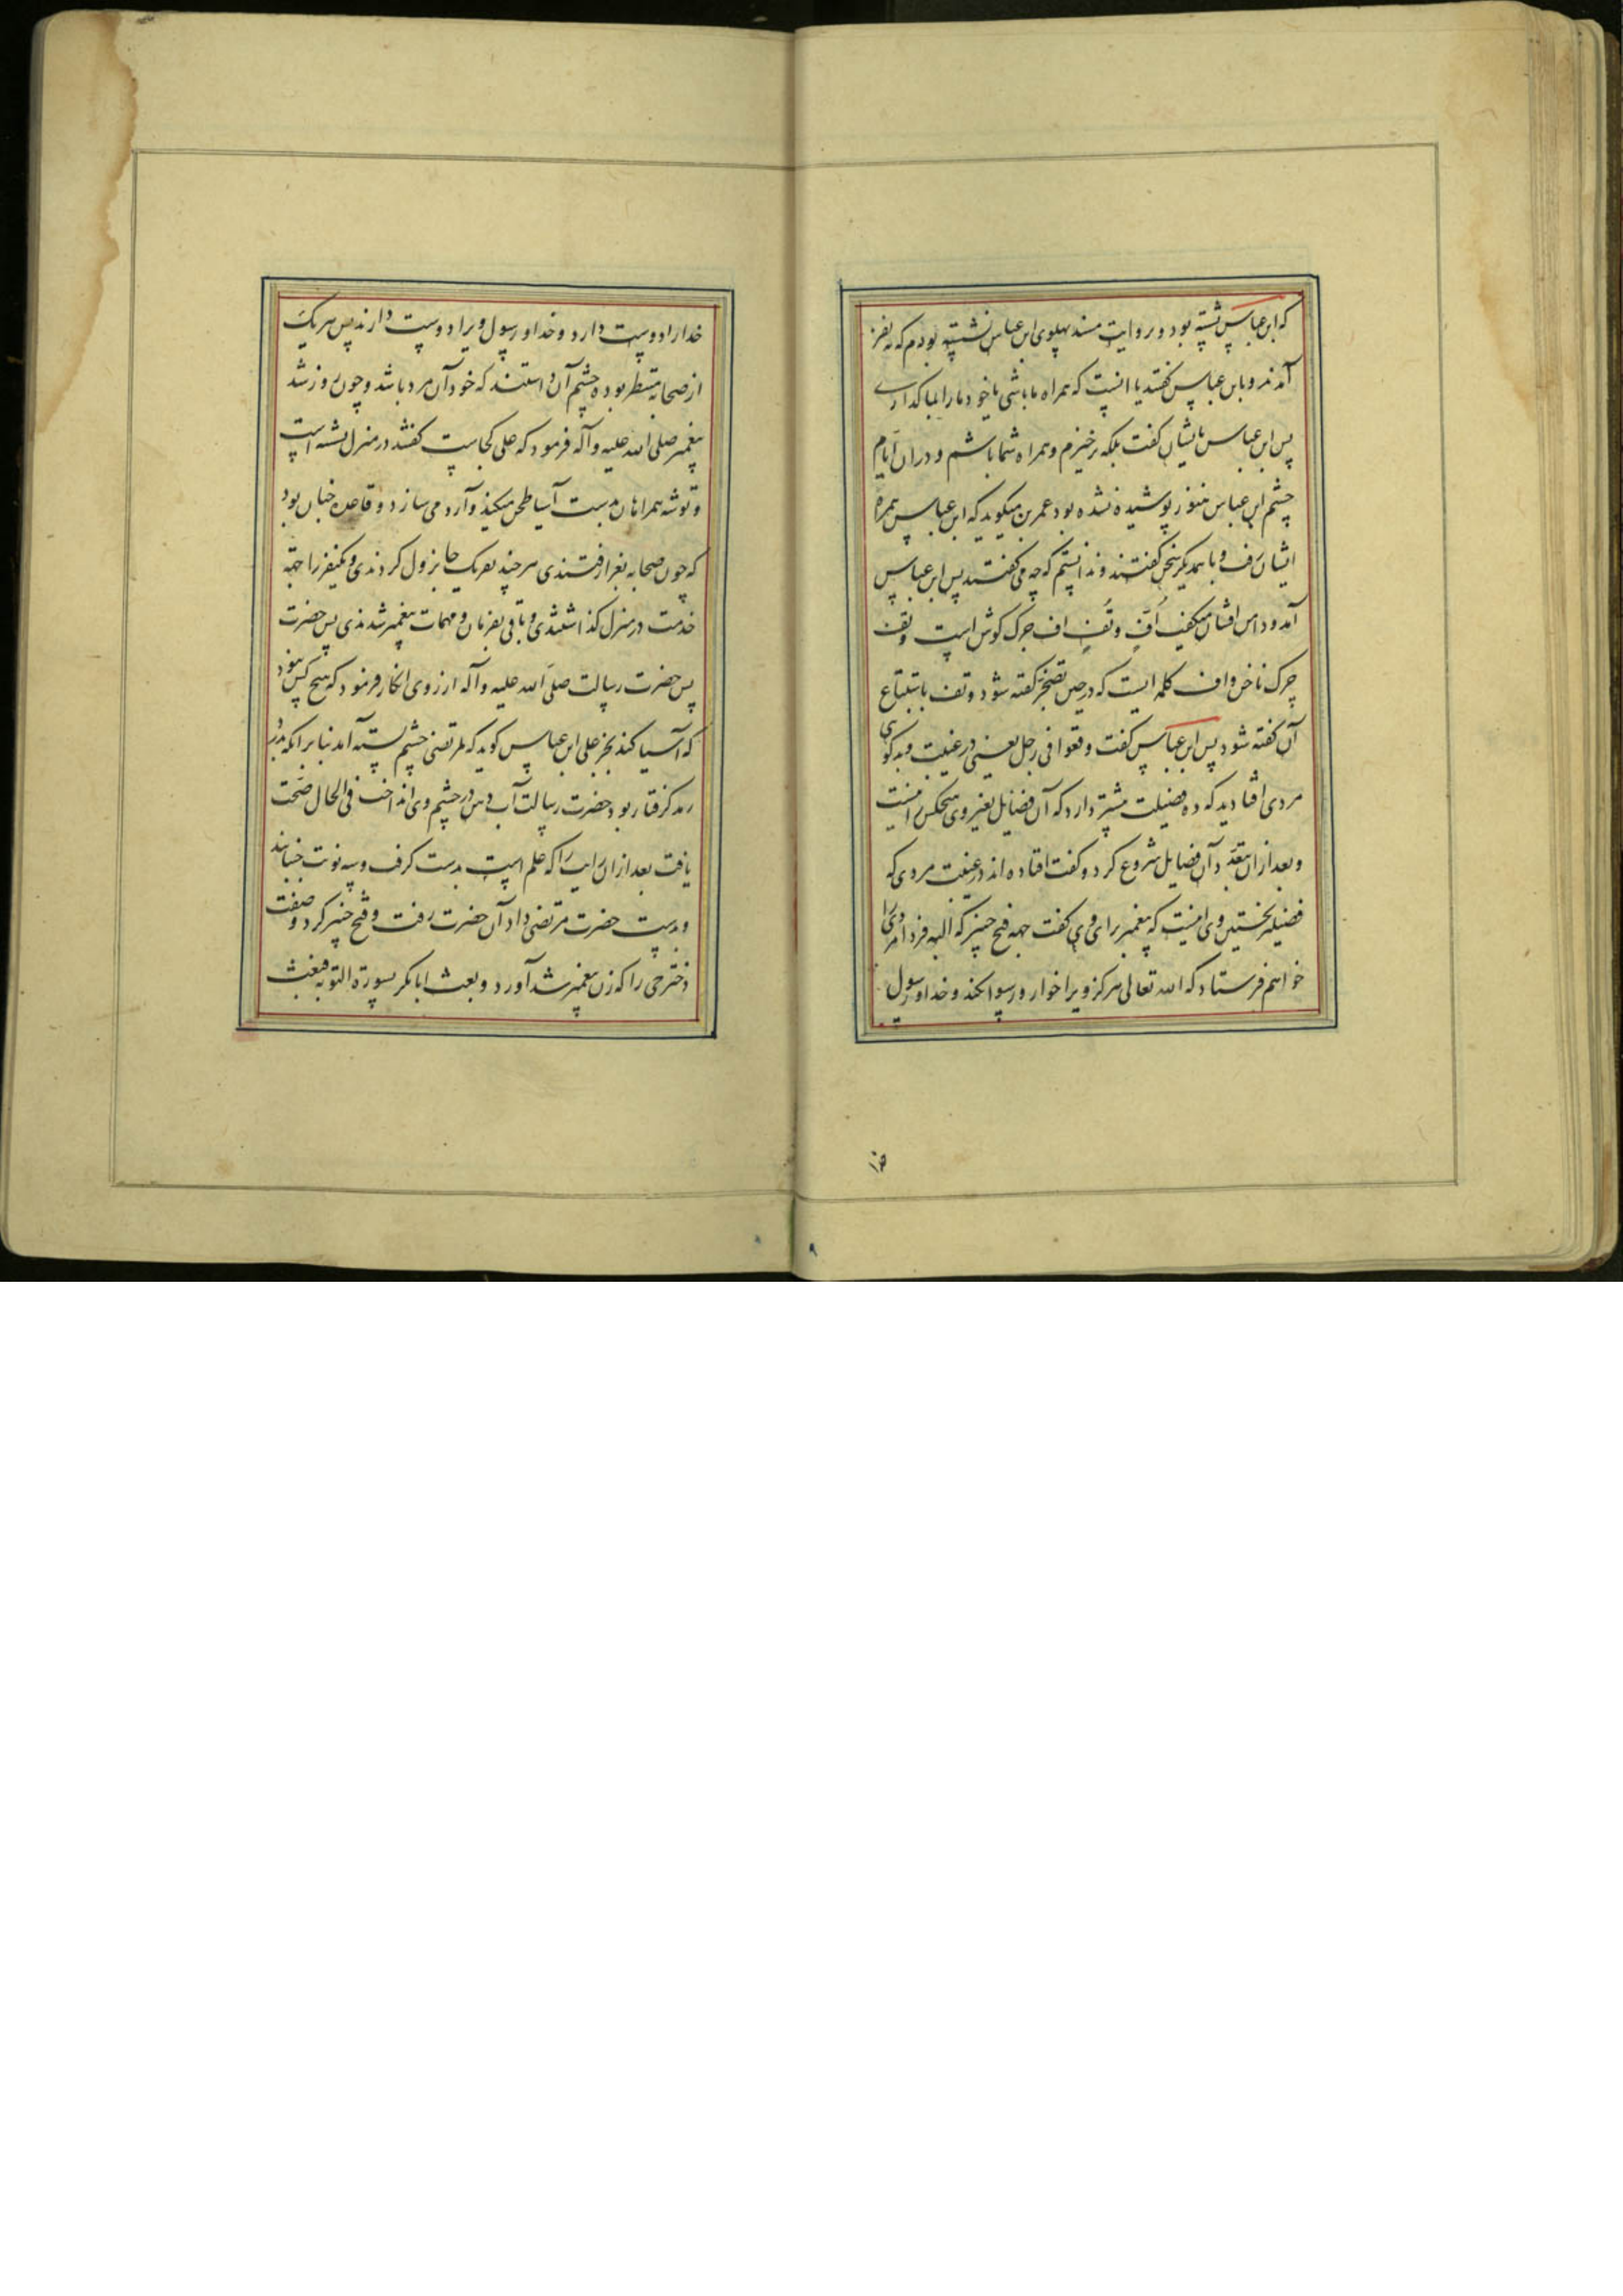 که ابن عباس نشسته بود و بروایت مسند پهلوی ابن عباس نشسته بودم که نه نفر
آمدند و با ابن عباس گفتند یا اینست که همراه ما باشی یا خود ما را بما گذاری
پس ابن عباس بایشان گفت بلکه برخیزم و همراه شما باشم و در آن ایام
چشم ابن عباس هنوز پوشیده نشده بود عمر بن میگوید که ابن عباس همراه
ایشان رفت و با همدیگر سخن گفتند و ندانستم که چه می گفتند پس ابن عباس
آمد و دامن افشان میگفت اُفٍّ وتُفٍّ اف چرک گوش است و تف
چرک ناخن و اف کلمه ایست که در حین تضجر گفته شود و تف باتباع
آن گفته شود پس ابن عباس گفت وقعوا فی رجل یعنی در غیبت و بدگوی
مردی افتادید که ده فضیلت بیشتر دارد که آن فضایل بغیر وی هیچکس را نیست
و بعد از آن بتعدد آن فضایل شروع کرد و گفت افتاده اند در غیبت مردی که
فضیلة نخستین وی اینست که پیغمبر برای وی گفت جهه فتح خیبر که البه فردا مردی را
خواهم فرستاد که الله تعالی هرگز ویرا خوار و رسوا نکند و خدا و رسول
خدا را دوست دارد و خدا و رسول ویرا دوست دارند پس هر یک
از صحابه منتظر بوده چشم آن داشتند که خود آن مرد باشد و چون روز شد
پیغمبر صلی الله علیه وآله فرمود که علی کجاست گفتند در منزل نشسته است
و توشه همراهان بدست آسیا طحن میکند و آرد می سازد و قاعده چنان بود
که چون صحابه بغزا رفتندی هر چند نفر یک جا نزول کردندی و یکنفر را جهة
خدمت در منزل گذاشتندی و باقی بفرمان و مهمات پیغمبر شدندی پس حضرت
پس حضرت رسالت صلی الله علیه وآله از روی انکار فرمود که هیچ کس نبود
که آسیا کند بجز علی ابن عباس گوید که مرتضی چشم بسته آمد بنابر آنکه بدرد
رمد گرفتار بود حضرت رسالت آب دهن در چشم وی انداخت فی الحال صحت
یافت بعد از آن رایت را که علم است بدست گرفت و سه نوبت جنبانید
و بدست حضرت مرتضی داد آن حضرت رفت و فتح خیبر کرد و صفیه
دختر حی را که زن پیغمبر شد آورد و بعث ابابکر بسورة التوبه فبعث
۹